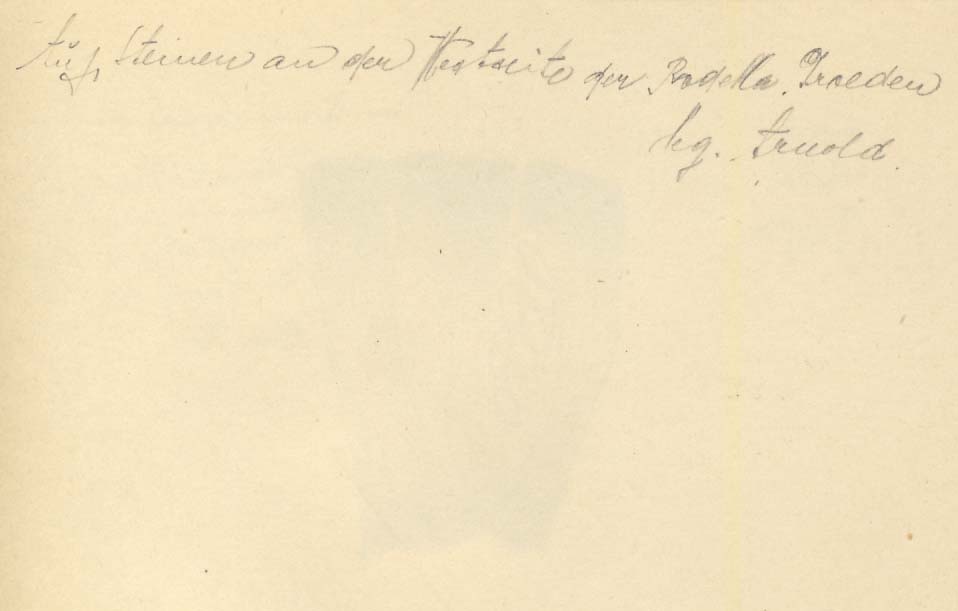 Auf Steinen an der Westseite der Rodella. Groeden
lg. Arnold.